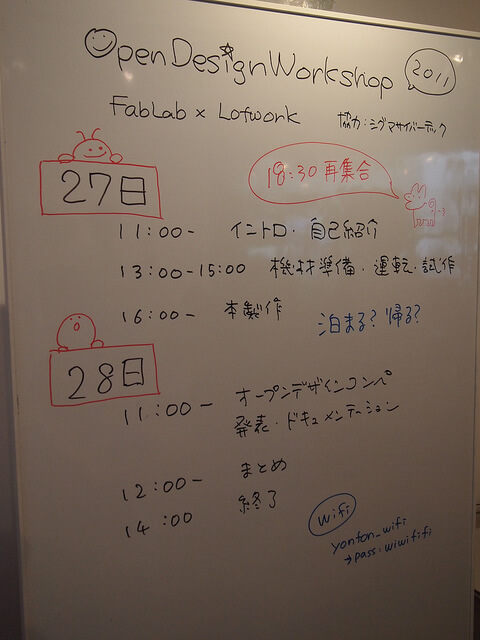 OpenDesignWorkshop 2011
FabLab × Loftwork
協力:シグマサイバーテック
27日
18:30 再集合
11:00- イントロ・自己紹介
13:00-15:00 機材準備・運転・試作
16:00- 本製作
泊まる?帰る?
28日
11:00- オープンデザインコンペ
発表・ドキュメンテーション
12:00- まとめ
14:00 終了
wifi
yonton_wifi
→pass:wiwififi